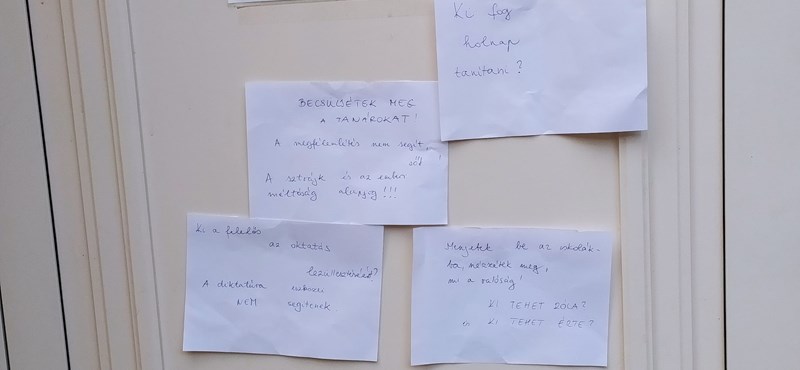 Ki fog
holnap
tanítani?
BECSÜLJÉTEK MEG
A TANÁROKAT!
A megfélemlítés nem segít,
sőt!
A sztrájk és az emberi
méltóság alapjog!!!
Ki a felelős
az oktatás
lezüllesztéséért?
A diktatúra eszközei
NEM segítenek
Menjetek be az iskolák-
ba, nézzétek meg,
mi a valóság!
Ki TEHET RÓLA?
és Ki TEHET ÉRTE?